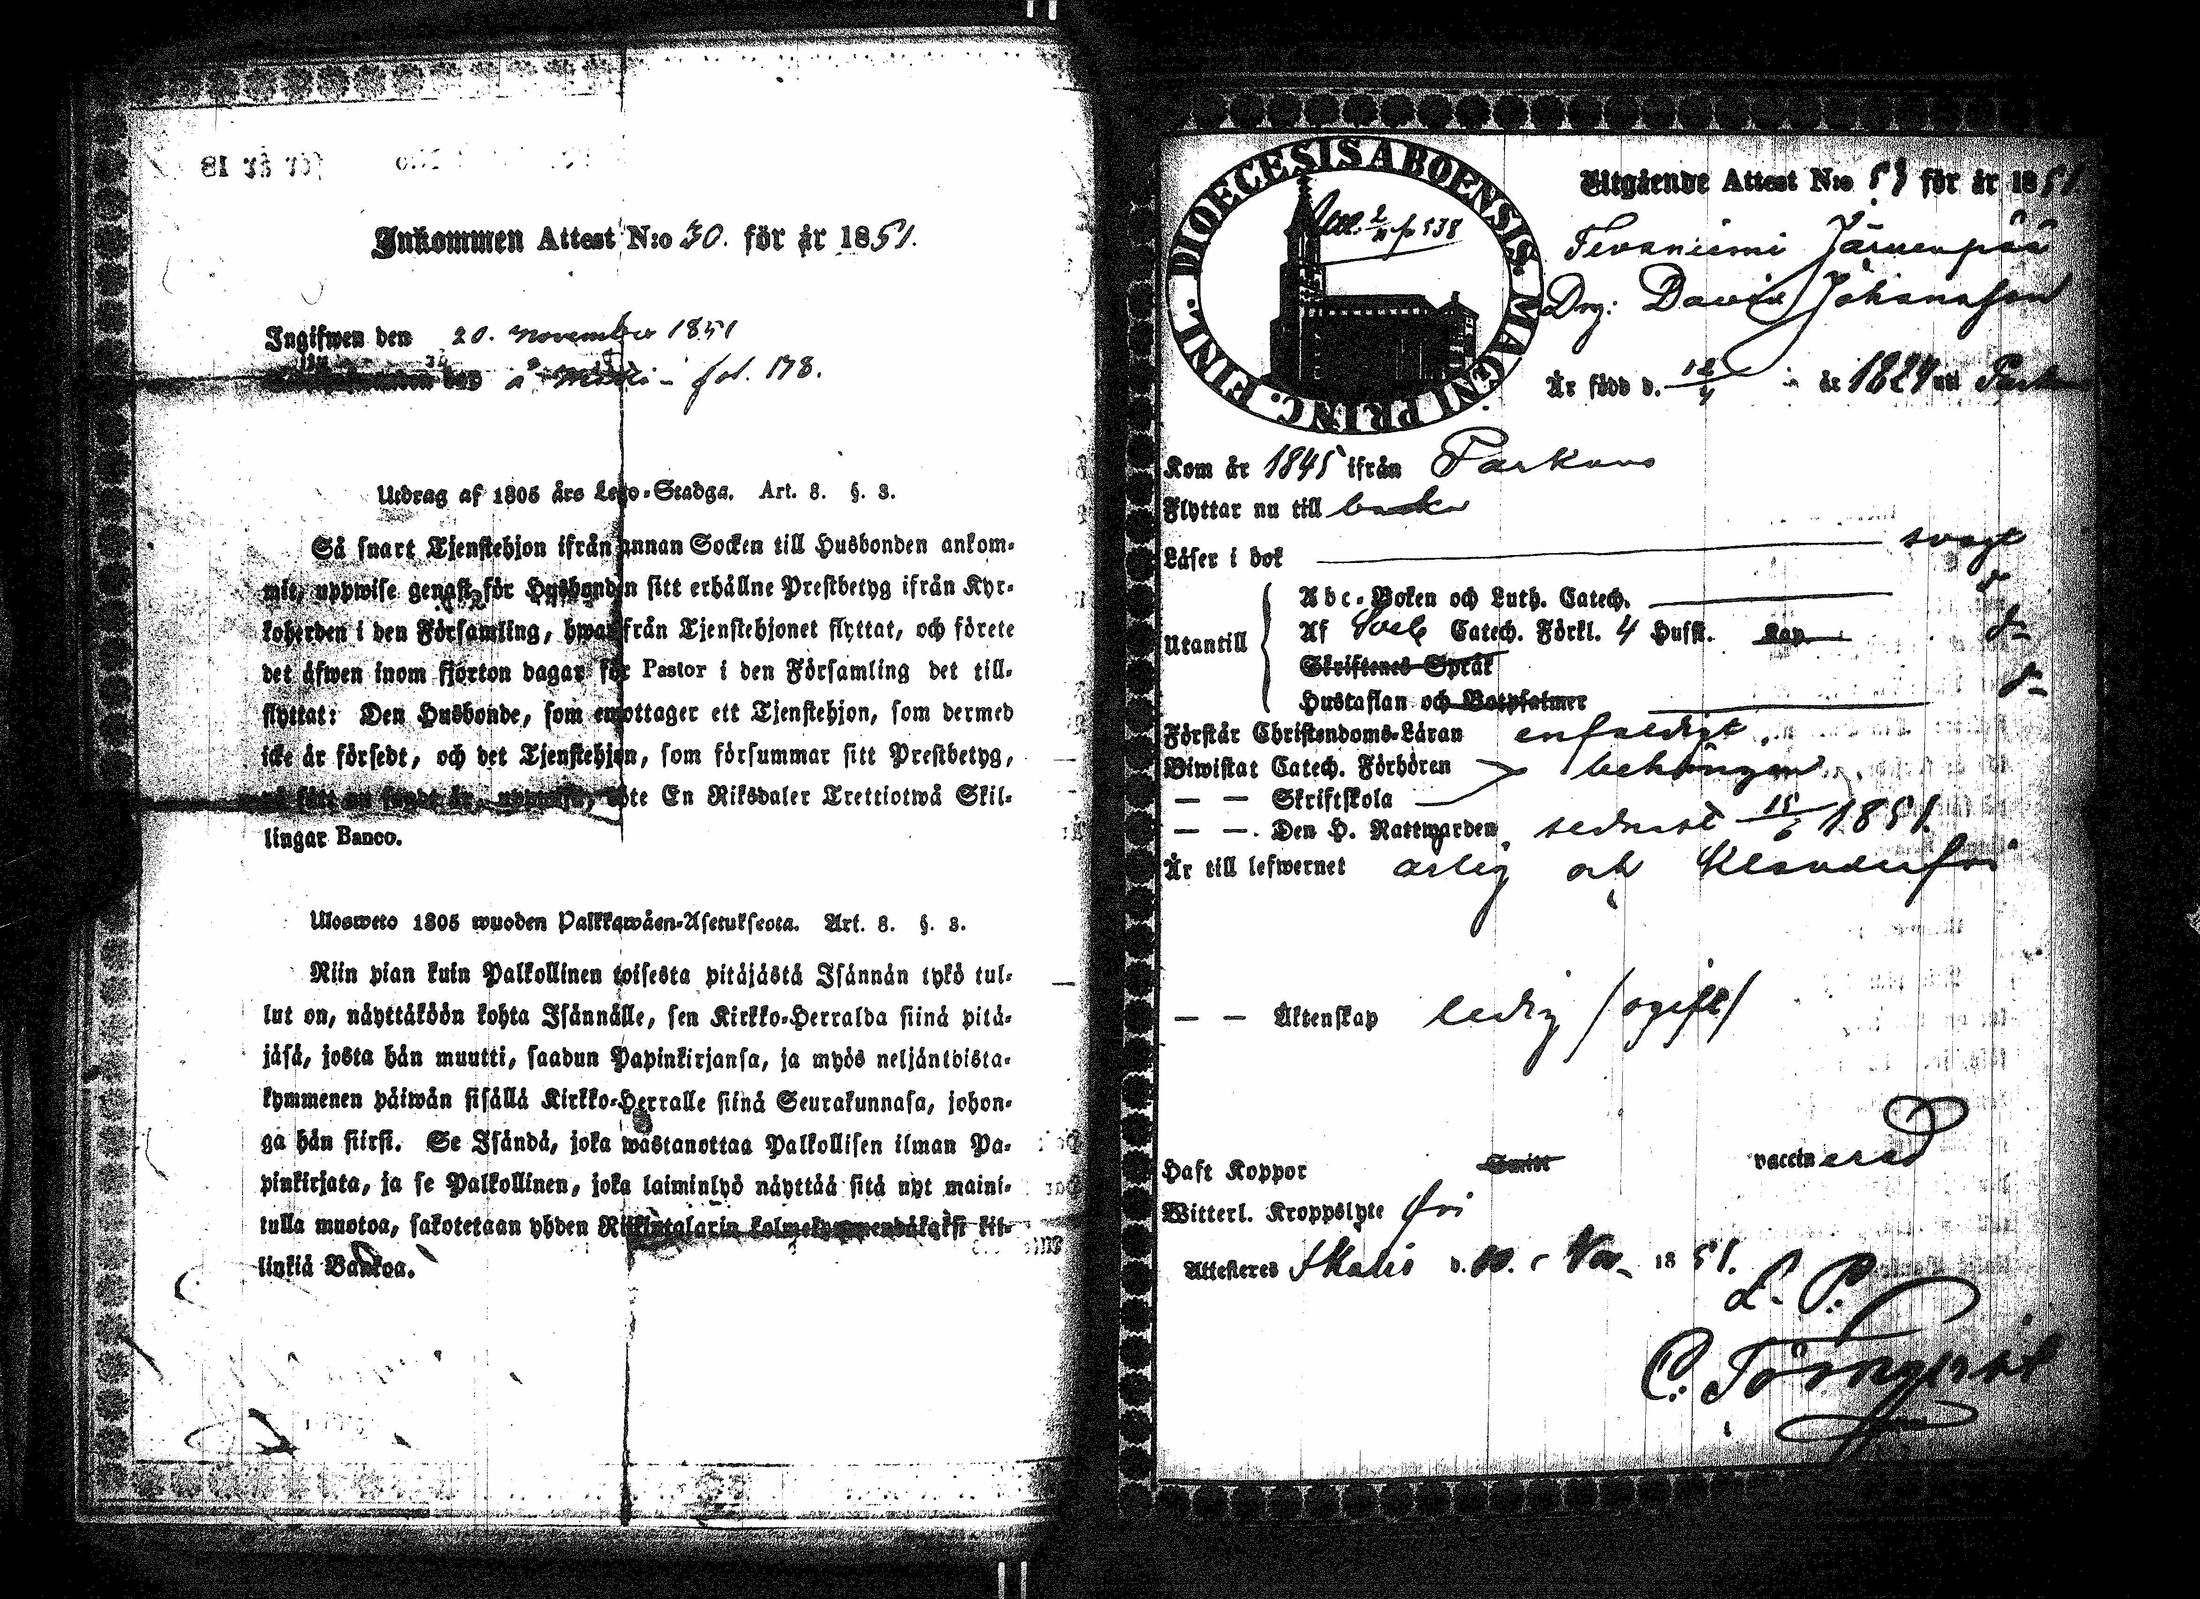 Inkommen Attest N:o 30. för år 1851.
Ingifwen den 20. November 1851
fol. 178.
Utdrag af 1805 års Lego-Stadga. Art. 8. §. 3.
Så snart Tjenstehjon ifrån annan Socken till Husbonden ankom-
mit, uppwise genast för Husbonden sitt erhållne Prestbetyg ifrån Kyr-
koherden i den Församling, hwarifrån Tjenstehjonet flyttat, och förete
det äfwen inom fjorton dagar för Pastor i den Församling det till-
flyttat: Den Husbonde, som emottager ett Tjenstehjon, som dermed
icke är försedt, och det Tjenstehjon, som försummar sitt Prestbetyg,
på sätt nu sagdt är, uppwisa, böte En Riksdaler Trettiotwå Skil-
lingar Banco.
Ulosweto 1805 wuoden Palkkawäen-Asetuksesta. Art. 8. §. 3.
Niin pian kuin Palkollinen toisesta pitäjästä Isännän tykö tul-
lut on, näyttäköön kohta Isännälle, sen Kirkko-Herralda siinä pitä-
jäsä, josta hän muutti, saadun Papinkirjansa, ja myös neljäntoista-
kymmenen päiwän sisällä Kirkko-Herralle siinä Seurakunnasa, johon-
ga hän siirsi. Se Isändä, joka wastanottaa Palkollisen ilman Pa-
pinkirjata, ja se Palkollinen, joka laiminlyö näyttää sitä nyt maini-
tulla muotoa, sakotetaan yhden Riikintalarin kolmekymmendäkaksi kil-
linkiä Bankoa.
DIOECESIS ABOENSIS. MAGNI PRINC. FINL.
p 538
Utgående Attest N:o 53 för år 1851
Tevaniemi Järvenpää
Drg: David Johansson
Är född d. 12/4 år 1824 uti Park
Kom år 1845 ifrån Parkano
Flyttar nu till
Läser i bok svagt
Utantill
Abc-Boken och Luth. Catech.
Af Sveb Catech. Förkl. 4 Husst. Kap
Skriftenes Språk
Hustaflan och Botpsalmer
Förstår Christendoms-Läran enfaldigt.
Biwistat Catech. Förhören behörigen
— — Skriftskola
— — Den H. Nattwarden sednast 15/6 1851.
Är till lefwernet ärlig och Klanderfri
— — Äktenskap ledig / ogift /
Haft Koppor Smitt vaccinerad
Witterl. Kroppslyte fri
Attesteres Ikalis d. 10. Nov 1851.
L. P.
C. Törnqvist